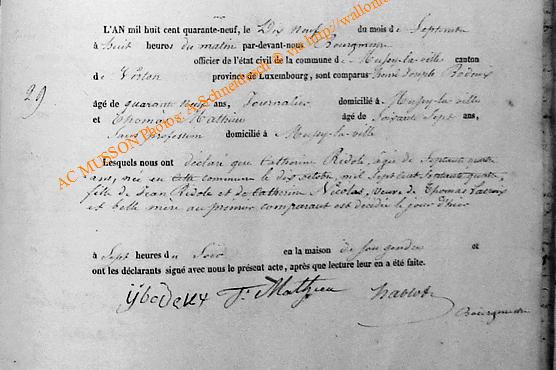 L'AN mil huit cent quarante-neuf, le Dix Neuf du mois de Septembre
à huit heures du matin par-devant-nous Bourgmestre
officier de l'état civil de la commune de Mussy-la-ville canton
de Virton province de Luxembourg, sont comparus Joseph Bodeux
29
âgé de quarante neuf ans, Journalier domicilié à Mussy-la-ville
et Thomas Mathieu âgé de soixante sept ans,
Sans profession domicilié à Mussy-la-ville
Lesquels nous ont déclaré que Catherine Ridole, âgée de septante quatre
ans, née en cette commune le dix octobre, mil sept cent septante quatre
fille de Jean Ridole et de Catherine Nicolas, veuve de Thomas
et belle mère au premier comparant est décédée le jour d'hier
à Sept heures du Soir en la maison de son gendre et
ont les déclarants signé avec nous le présent acte, après que lecture leur en a été faite.
T. Mathieu
Bourgmestre
AC MUSSON Photos: A. Schneidesch @ via http://wallonie